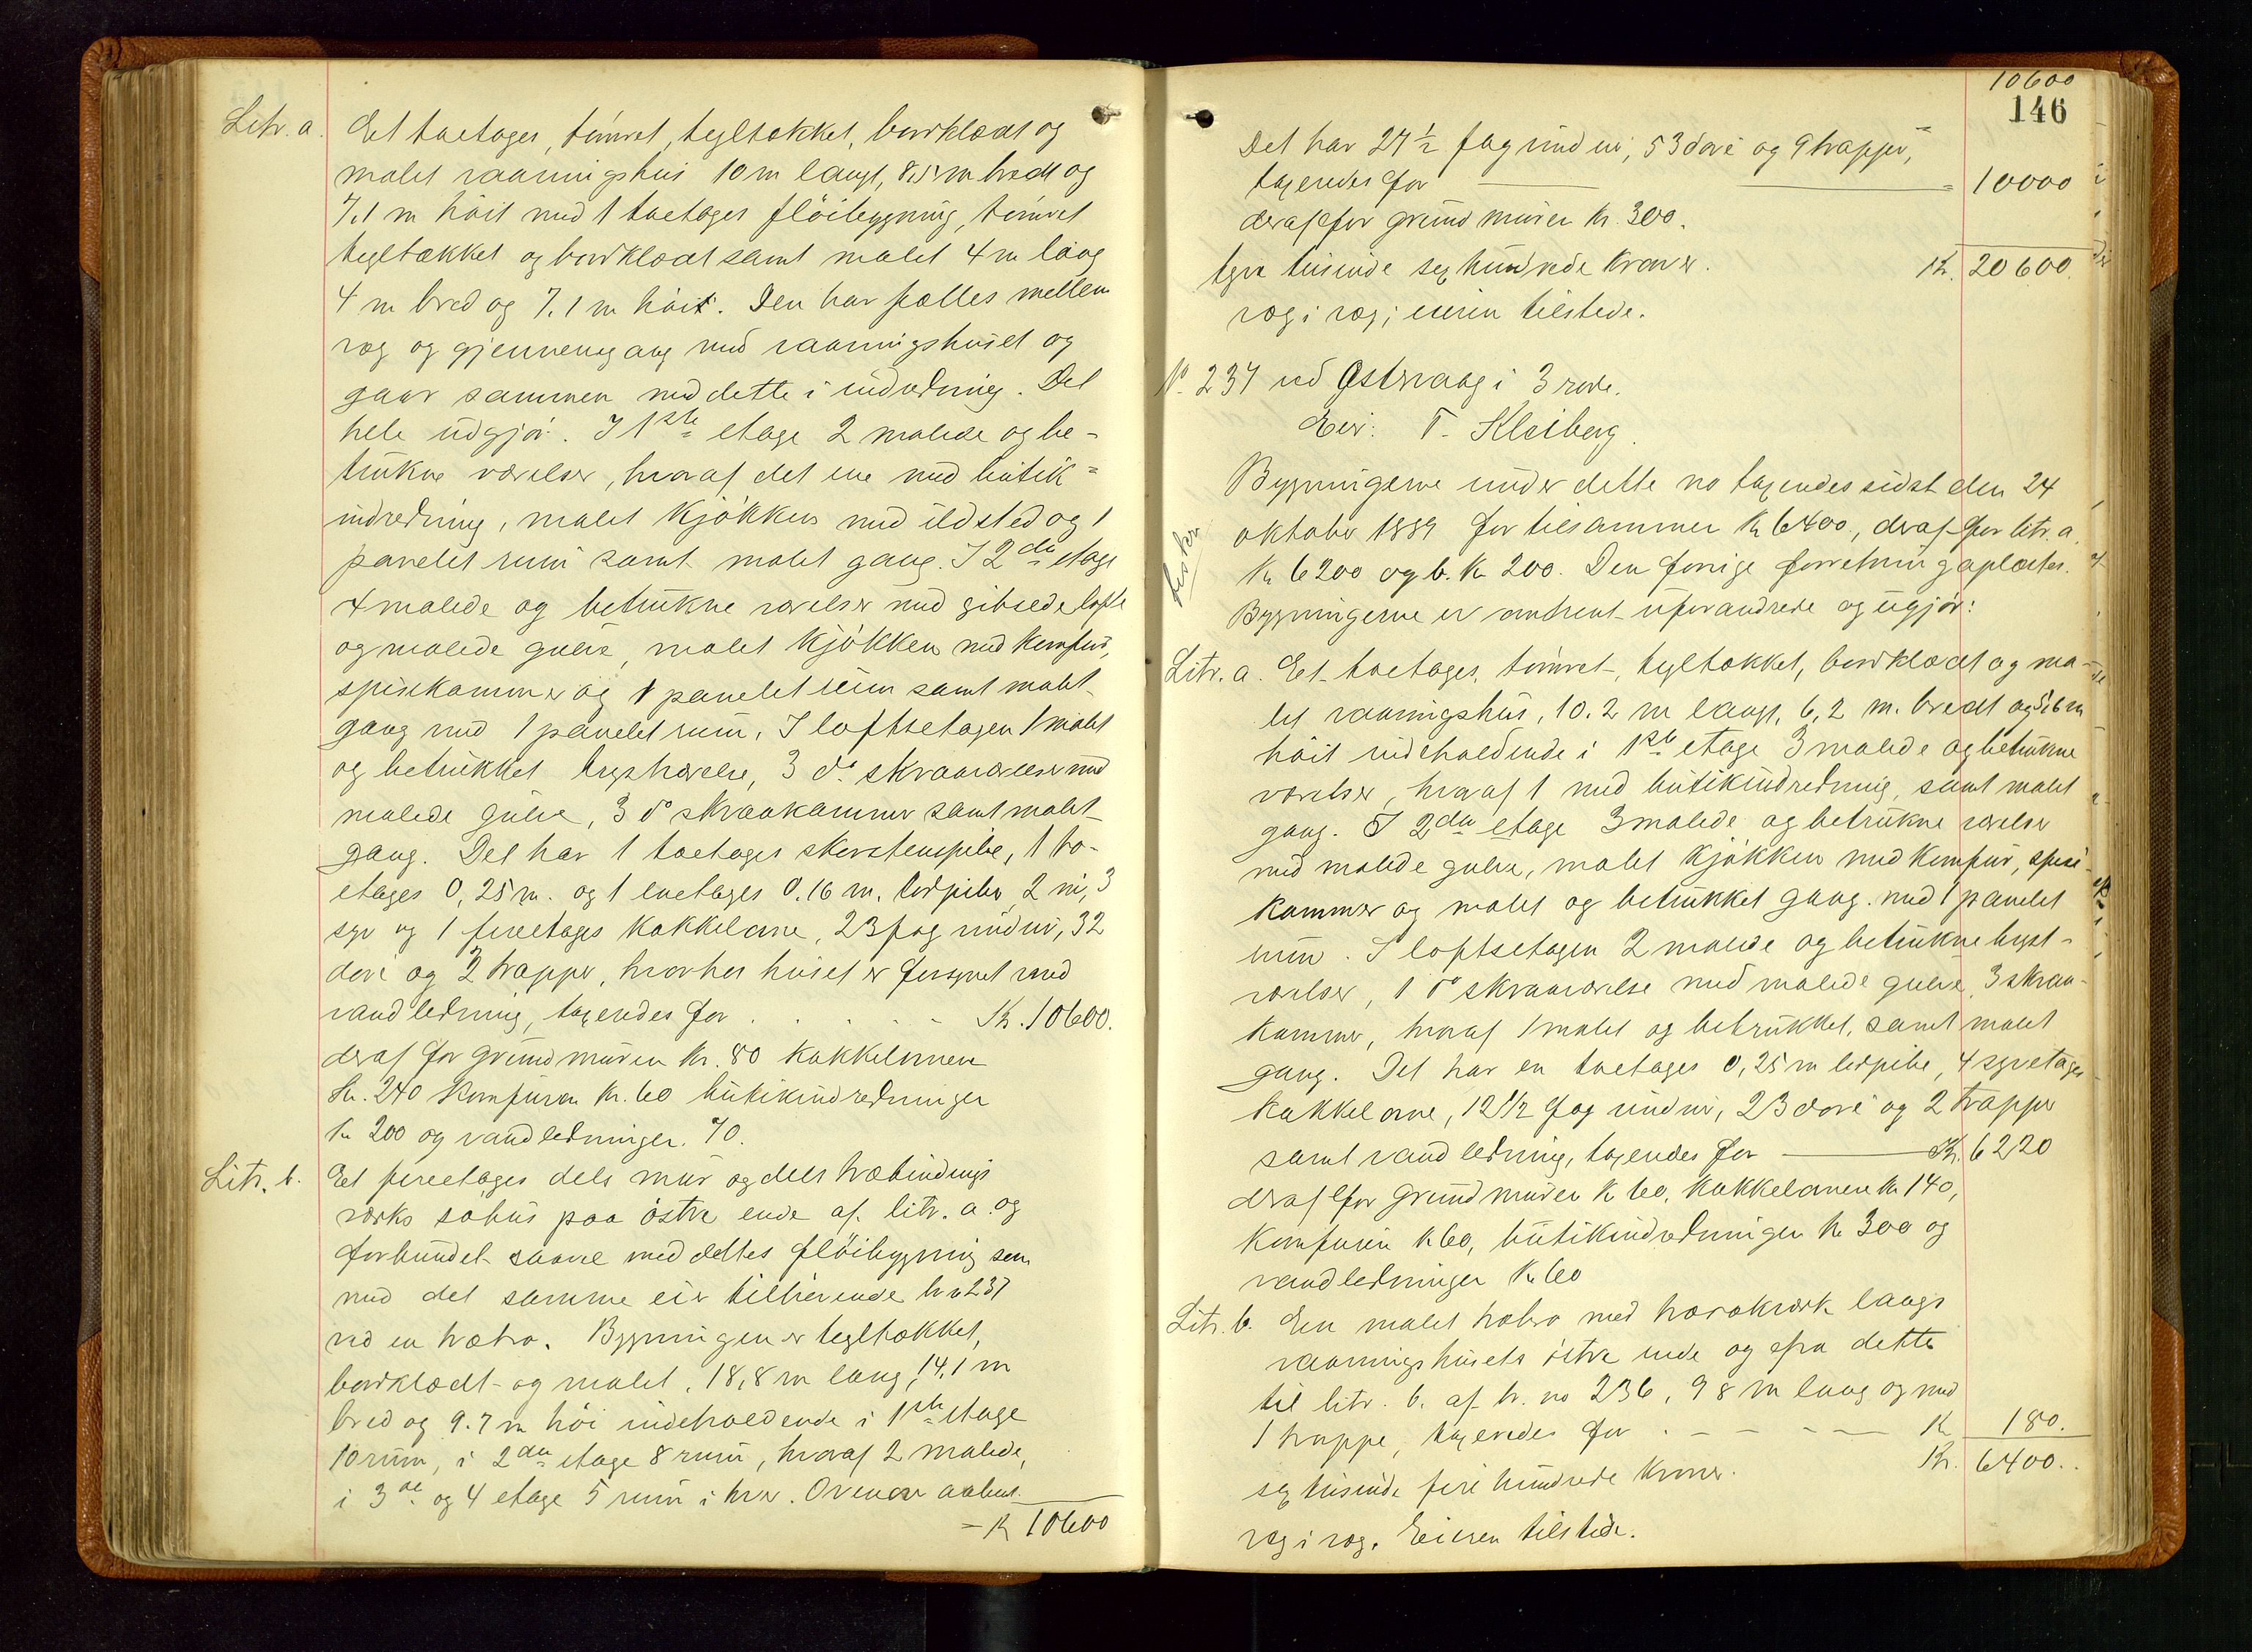 Litr. a. Et toetages, tømret, tegltækket, bordklædt og
malet vaaningshus 10 m langt, 8,5 m bredt og
7,1 m høit med 1 toetages fløibygning, tømret
tegltækket og bordklædt samt malet 4 m lang
4 m bred og 7,1 m høit. Den har fælles mellem
væg og gjennemgang med vaaningshuset og
gaar sammen med dette i indredning. Det
hele udgjør: I 1ste etage 2 malede og be-
trukne værelser, hvoraf det ene med butik-
indredning, malet kjøkken med ildsted og 1
panelet rum samt malet gang. I 2den etage
4 malede og betrukne værelser med gibsede lofte
og malede gulve, malet kjøkken med komfur,
spisekammer og 1 panelet rum samt malet
gang med 1 panelet rum. I loftsetagen 1 malet
og betrukket kvistværelse, 3 do skraaværelser med
malede gulve, 3 do skraakammer samt malet
gang. Det har 1 toetages skorstenspibe, 1 to-
etages 0,25 m. og 1 enetages 0.16 m. lerpiber, 2 ni, 3
syv og 1 fireetages kakkelovne, 23 fag vinduer, 32
døre og 2 trapper, hvorhos huset er forsynet med
vandledning, taxeredes for . . . . . Kr. 10600.
deraf for grundmuren kr. 80 kakkelovnene
kr. 240 komfuren kr. 60 butikindredningen
kr 200 og vandledningen 70.
Litr. b. Et fireetages dels mur og dels træbindings
værks søhus paa østre ende af litr. a og
forbundet saavel med dettes fløibygning som
med det samme eier tilhørende br no 237
ved en træbro. Bygningen er tegltækket,
bordklædt og malet, 18,8 m lang, 14,1 m
bred og 9.7 m høi indeholdende i 1ste etage
10 rum, i 2den etage 8 rum, hvoraf 2 malede,
i 3de og 4 etage 5 rum i hver. Ovenover aabent.
= Kr 10600
10600
146
Det har 27 1/2 fag vinduer, 53 døre og 9 trapper,
taxeredes for = 10000
deraf for grundmuren kr. 300.
tyve tusinde sex hundrede kroner. Kr. 20600.
væg i væg; eieren tilstede.
No. 237 ved Østervaag i 3 rode.
Eier: T. Kleiberg.
Bygningerne under dette no taxeredes sidst den 24
oktober 1889 for tilsammen kr 6400, deraf for litr. a.
kr 6200 og b. kr 200. Den forrige forretning aplæstes.
Bygningerne er omtrent uforandrede og ugjør:
Litr. a. Et toetages, tømret, tegltækket, bordklædt og ma-
let vaaningshus, 10.2 m langt, 6,2 m. bredt og 5,6 m
høit indeholdende i 1ste etage 3 malede og betrukne
værelser, hvoraf 1 med butikindredning, samt malet
gang. I 2den etage 3 malede og betrukne værelser
med malede gulve, malet kjøkken med komfur, spise-
kammer og malet og betrukket gang. med 1 panelet
rum. I loftsetagen 2 malede og betrukne kvist-
værelser, 1 do skraaværelse med malede gulve, 3 skraa-
kammer, hvoraf 1 malet og betrukket, samt malet
gang. Det har en toetages 0,25 m lerpibe, 4 syvetages
kakkelovne, 12 1/2 fag vinduer, 23 døre og 2 trapper
samt vandledning, taxeredes for Kr. 6220
deraf for grundmuren kr 60, kakkelovnene kr 140,
komfuren kr 60, butikindredningen kr 300 og
vandledningen kr 60
Litr. b. En malet træbro med træ langs
vaaningshusets østre ende og fra dette
til litr. b. af br. no 236, 9 8 m lang og med
1 trappe, taxeredes for . - - - - Kr 180.
Kr. 6400.
sex tusinde fire hundrede kroner.
væg i væg. Eieren tilstede.